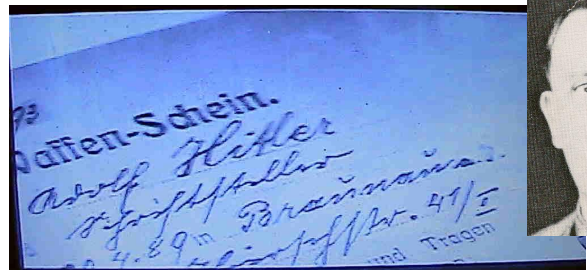 Waffen-Schein.
Adolf Hitler
Schriftsteller
4.89 in Braunau a.
Thierschstr. 41/I
und Tragen